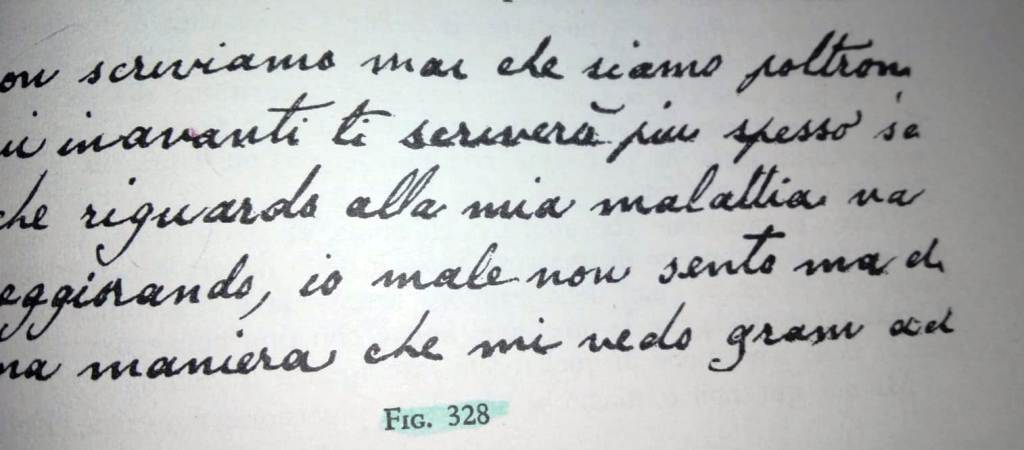 on scriviamo mai che siamo poltron
ui inavanti ti scriverà piu spesso sa
che riguardo alla mia malattia va
eggiorando, io male non sento ma d
na maniera che mi vedo gram ad
FIG. 328